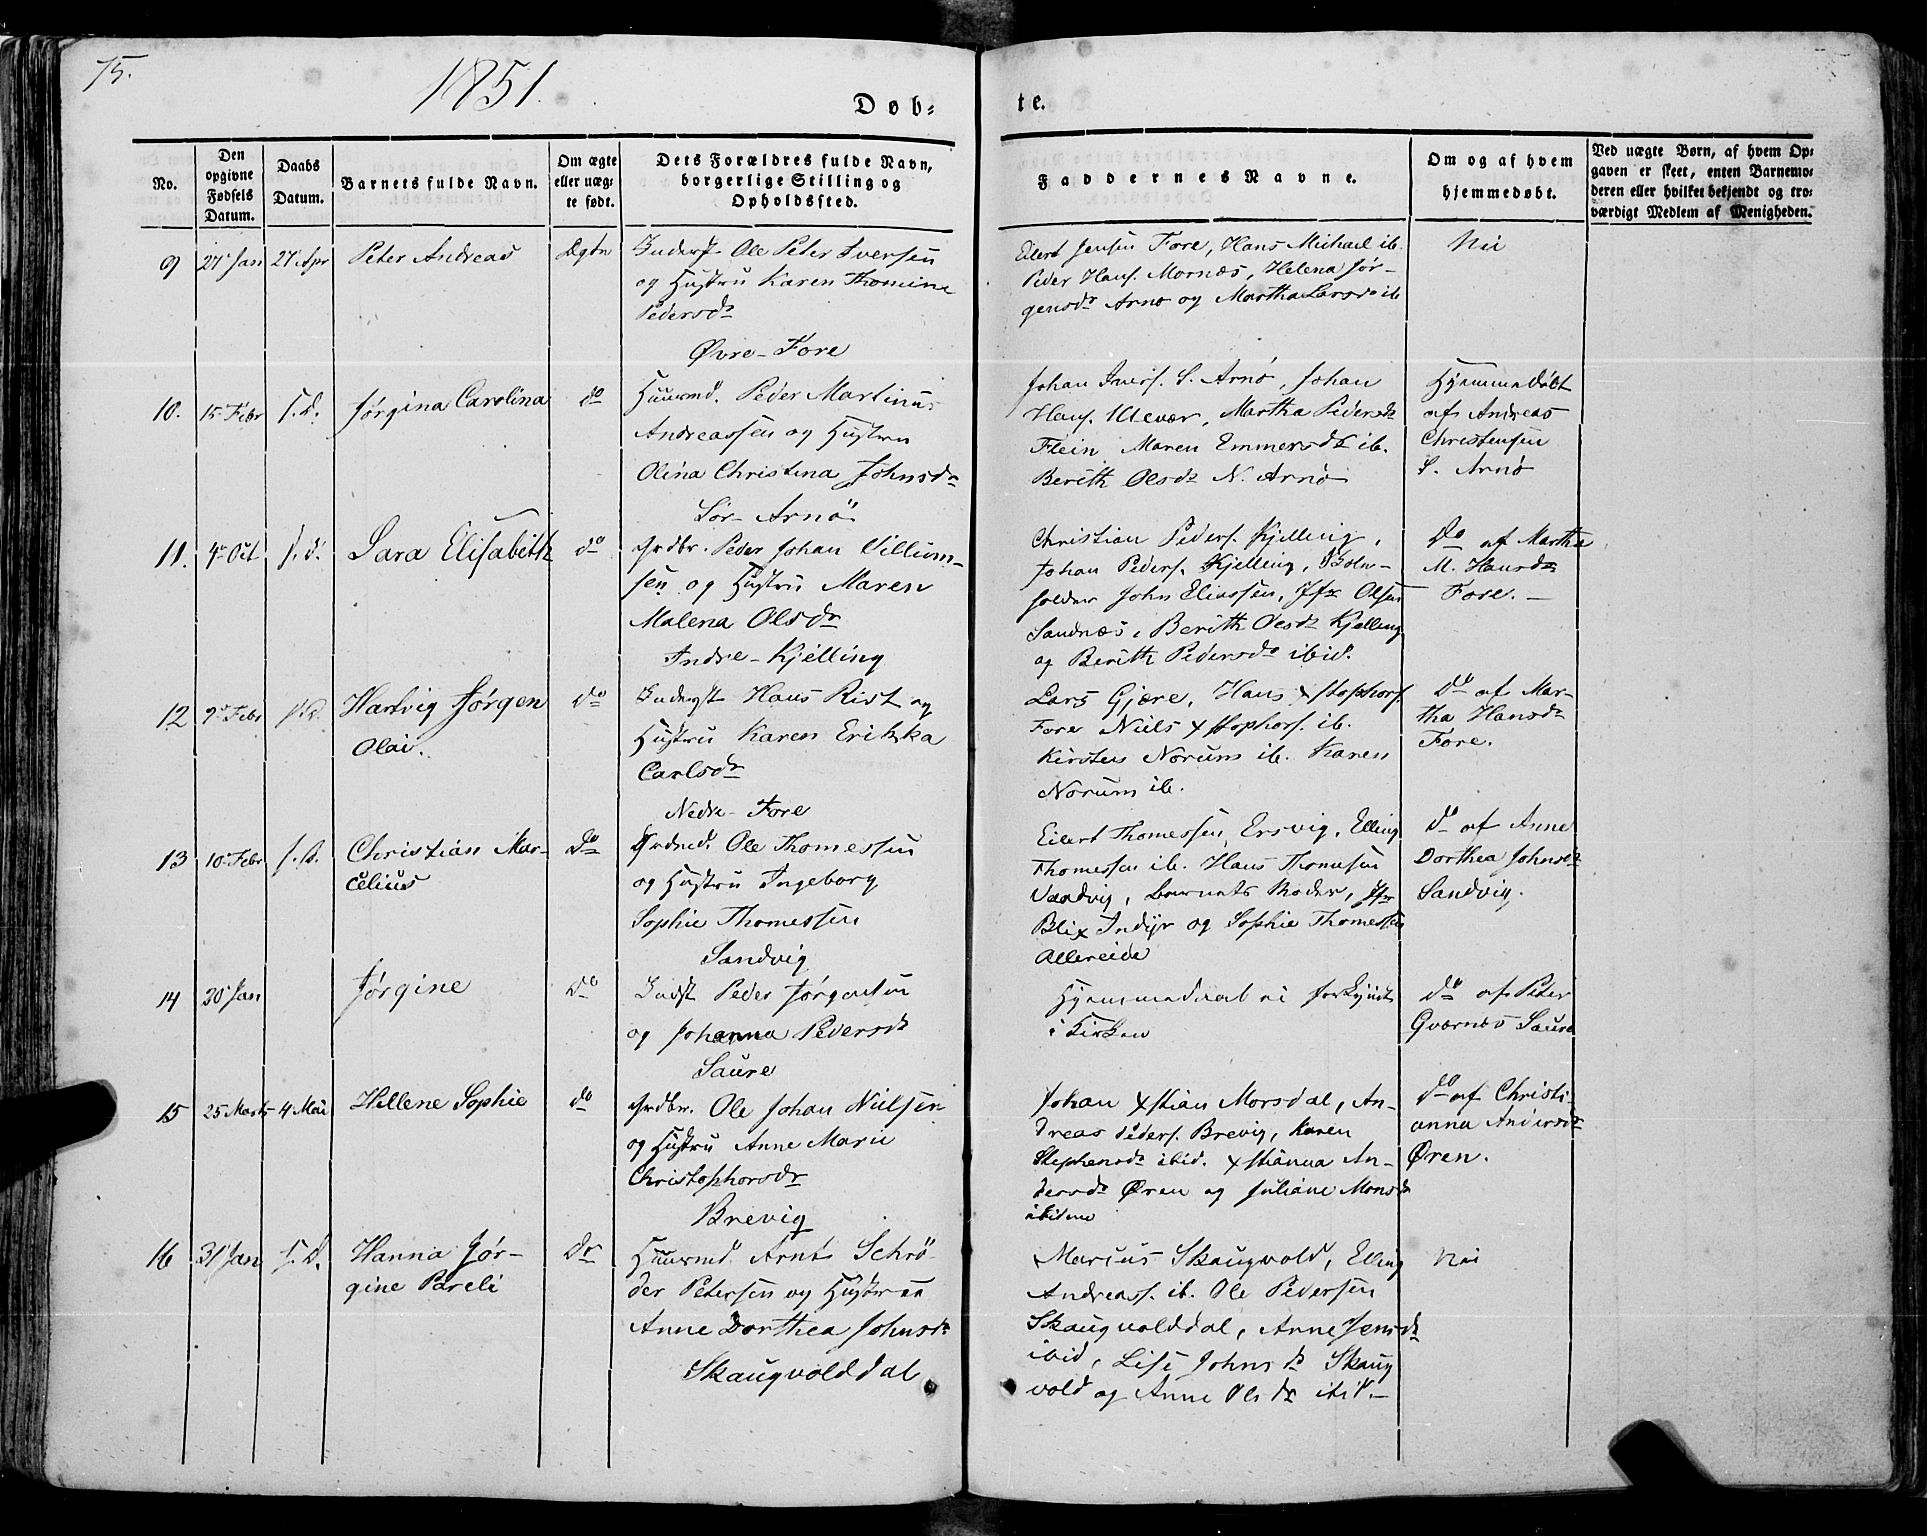 75.
1851.
Døb=
te.
No.
Den opgivne Fødsels Datum.
Daabs Datum.
Barnets fulde Navn.
Om ægte eller uæg= te født.
Dets Forældres fulde Navn, borgerlige Stilling og Opholdssted.
Faddernes Navne.
Om og af hvem hjemmedøbt.
Ved uægte Børn, af hvem Op= gaven er skeet, enten Barnemo= deren eller hvilket bekjendt og tro= værdigt Medlem af Menigheden.
9 27 Jan 27 Apr Peter Andreas Ægte
Inderst Ole Peter Iversen
og Hustru Karen Thomine
Pedersdr
Øvre-Fore
Eilert Jensen Fore, Hans Michael ib.
Peder Hans. Mornæs, Helena Jør-
gensdr Arnø og Martha Larsdr ib
Nei
10. 15 Febr s.d. Jørgina Carolina do
Huusmd. Peder Martinus
Andreassen og Hustru
Olina Christina Johnsdr
Sør-Arnö
Johan Ivers. S. Arnø, Johan
Hans. Ulevær, Martha Pedersdr
Flein Maren Emmersdr ib.
Berith Olsdr N. Arnø
Hjemmedøbt
af Andreas
Christensen
S. Arnö
11. 4 Oct s.d. Sara Elisabeth do
Grdbr. Peder Johan Villum-
sen og Hustru Maren
Malena Olsdr
Indre-Kjelling
Christian Peders. Kjelling,
Johan Peders. Kjelling,
John Eliassen, Jfr Olsen
Sandnæs, Berith Olsdr Kjelling
og Berith Pedersdr ibid.
Do af Martha
M. Hansdr
Fore. -
12 9 Febr s.d. Hartvig Jørgen do
Olai.
Inderst Hans Rist og
Hustru Karen Erikka
Carlsdr
Nedre-Fore
Lars Gjære, Hans Xstophers.
Fore Niels Xstophers. ib.
Kirsten Norum ib. Karen
Norum ib.
Do af Mar-
tha Hansdr
Fore.
13 10 Febr s.d. Christian Mar- do
celius
Ole Thomessen
og Hustru Ingeborg
Sophie Thomessen
Sandvig
Eilert Thomessen Ersvig, Elling
Thomessen ib. Hans Thomesen
Sandvig, Barnets Moder, Jfr
Blix Indyr og Sophie Thomessen
Allereide
do af Anne
Dorthea Johnsdr
Sandvig.
14 30 Jan Jørgine do
Indst Peder Jørgensen
og Johanna Pedersdr
Saure
Hjemmedaab ei forkyndt
i Kirken
do af Peter
Qvarnes Saure
15 25 Marts 4 Mai Hellene Sophie do
Grdbr. Ole Johan Nielsen
og Hustru Anne Marie
Christophersdr
Brevig
Johan Xstian Morsdal, An-
dreas Peders. Brevig, Karen
Stephensdr ibid. Xstianna An-
dersdr Øren og Juliane Monsdr
ibidem
do af Christi-
anna Andersdr
Øren.
16 31 Jan s.d. Hanna Jør- do
gine Pareli
Huusmd. Arnt Schrö-
der Petersen og Hustrue
Anne Dorthea Johnsdr
Skaugvolddal
Marius Skaugvold, Elling
Andreass. ib. Ole Pedersen
Skaugvolddal, Anne Jensdr
ibid, Lise Johnsdr Skaug
vold og Anne Olsdr ibid. -
Nei